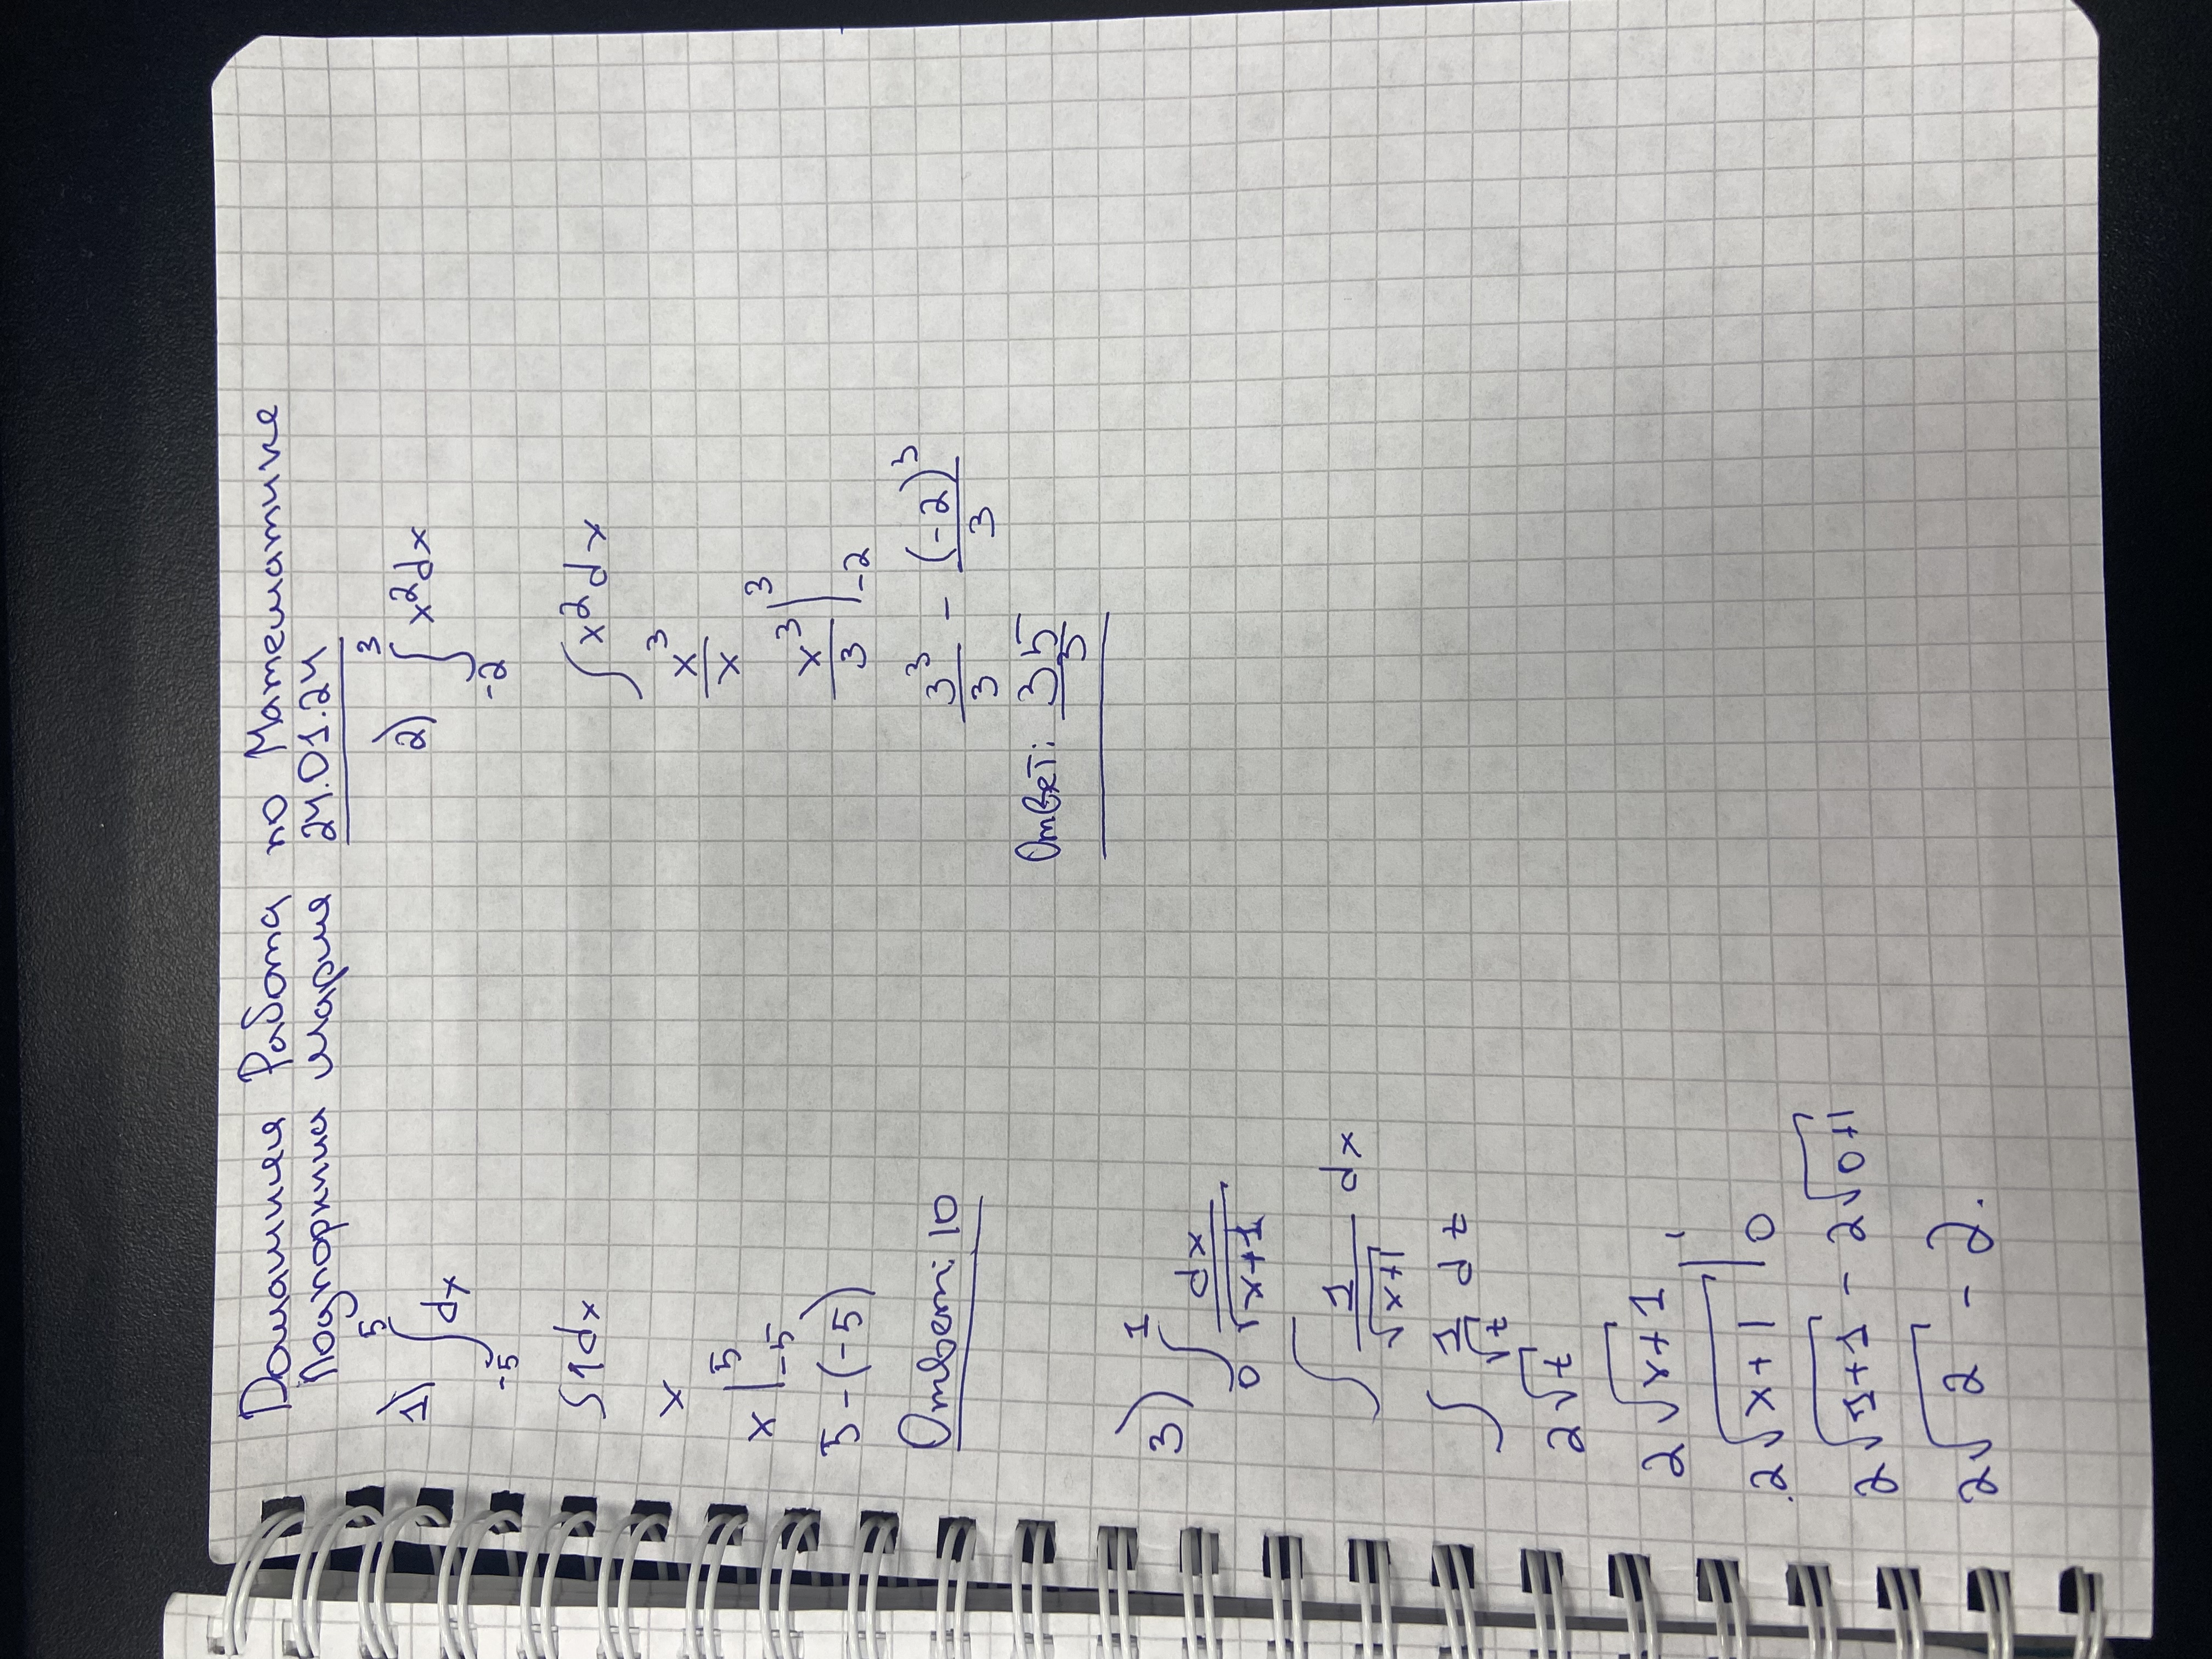 Домашняя Работа по Математике
Подпоркина Мария 24.01.24
1) ∫₋₅⁵ dx
∫1dx
x
x |₋₅⁵
5-(-5)
Ответ: 10
2) ∫₋₂³ x²dx
∫x²dx
x³/x
x³/3 |₋₂³
3³/3 - (-2)³/3
Ответ: 35/3
3) ∫₀¹ dx/√(x+1)
∫ 1/√(x+1) dx
∫ 1/√t dt
2√t
2√(x+1)
2√(x+1) |₀¹
2√(1+1) - 2√(0+1)
2√2 - 2.